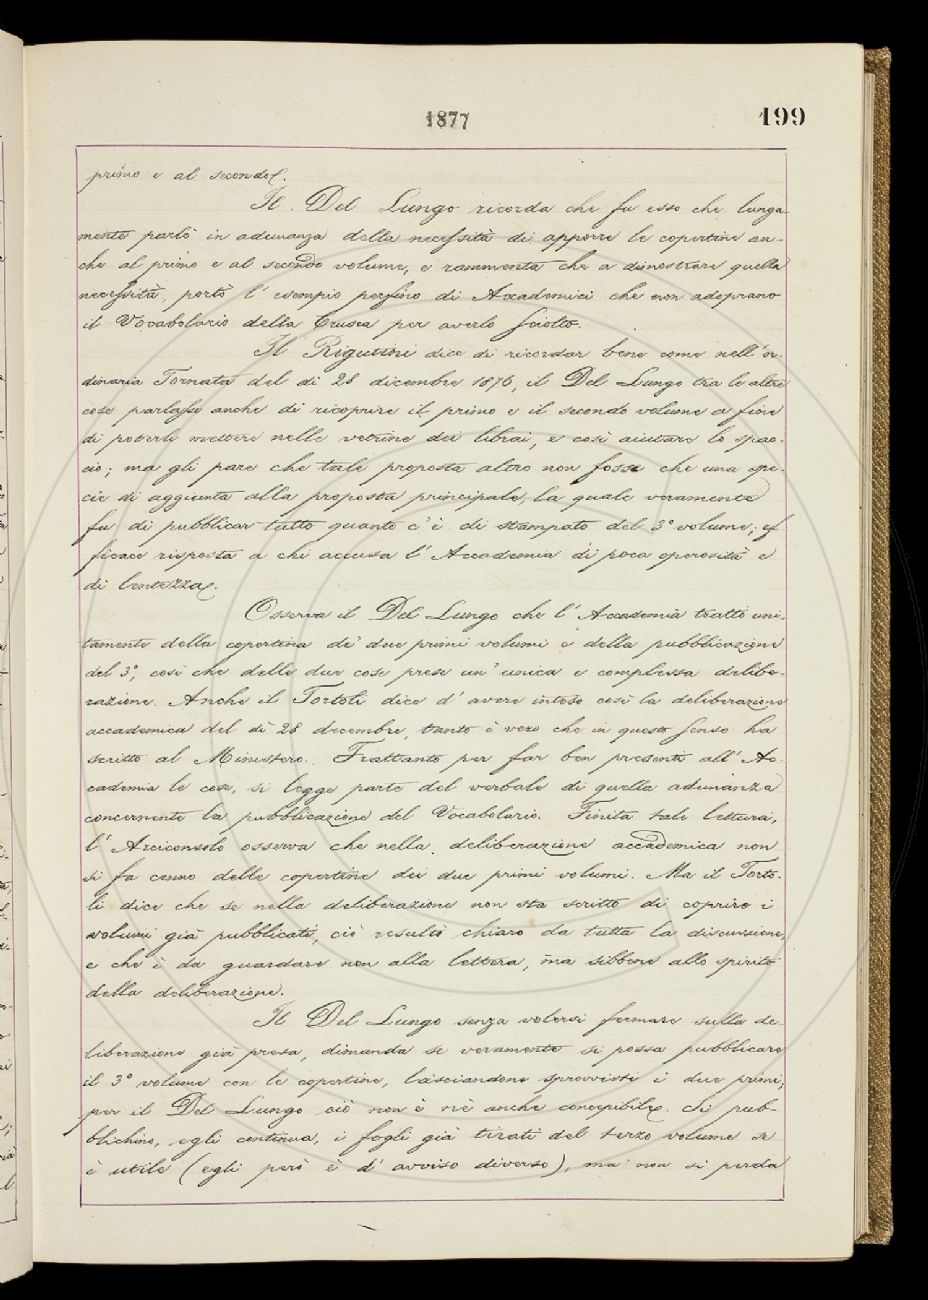 1877
199
primo e al secondo.
Il Del Lungo ricorda che fu esso che lunga-
mente parlò in adunanza della necessità di apporre le copertine an-
che al primo e al secondo volume, e rammenta che a dimostrare quella
necessità, portò l'esempio persino di Accademici che non adoprano
il Vocabolario della Crusca per averlo sciolto.
Il Rigutini dice di ricordar bene come nell'or-
dinaria Tornata del dì 28 dicembre 1876, il Del Lungo tra le altre
cose parlasse anche di ricoprire il primo e il secondo volume a fine
di poterli mettere nelle vetrine dei librai, e così aiutare lo spac-
cio; ma gli pare che tale proposta altro non fosse che una spe-
cie di aggiunta alla proposta principale, la quale veramente
fu di pubblicar tutto quanto c'è di stampato del 3° volume; ef-
ficace risposta a chi accusa l'Accademia di poca operosità e
di lentezza.
Osserva il Del Lungo che l'Accademia trattò uni-
tamente della copertina de' due primi volumi e della pubblicazione
del 3°, così che delle due cose prese un'unica e complessa delibe-
razione. Anche il Tortoli dice d'avere inteso così la deliberazione
accademica del dì 28 decembre, tanto è vero che in questo senso ha
scritto al Ministero. Frattanto per far ben presente all'Ac-
cademia le cose, si legge parte del verbale di quella adunanza
concernente la pubblicazione del Vocabolario. Finita tale lettura,
l'Arciconsolo osserva che nella deliberazione accademica non
si fa cenno delle copertine dei due primi volumi. Ma il Torto-
li dice che se nella deliberazione non sta scritto di coprire i
volumi già pubblicati, ciò resultò chiaro da tutta la discussione,
e che è da guardare non alla lettera, ma sibbene allo spirito
della deliberazione.
Il Del Lungo senza volersi fermare sulla de-
liberazione già presa, dimanda se veramente si possa pubblicare
il 3° volume con le copertine, lasciandone sprovvisti i due primi;
per il Del Lungo ciò non è nè anche concepibile. Si pub-
blichino, egli continua, i fogli già tirati del terzo volume se
è utile (egli però è d'avviso diverso), ma non si perda